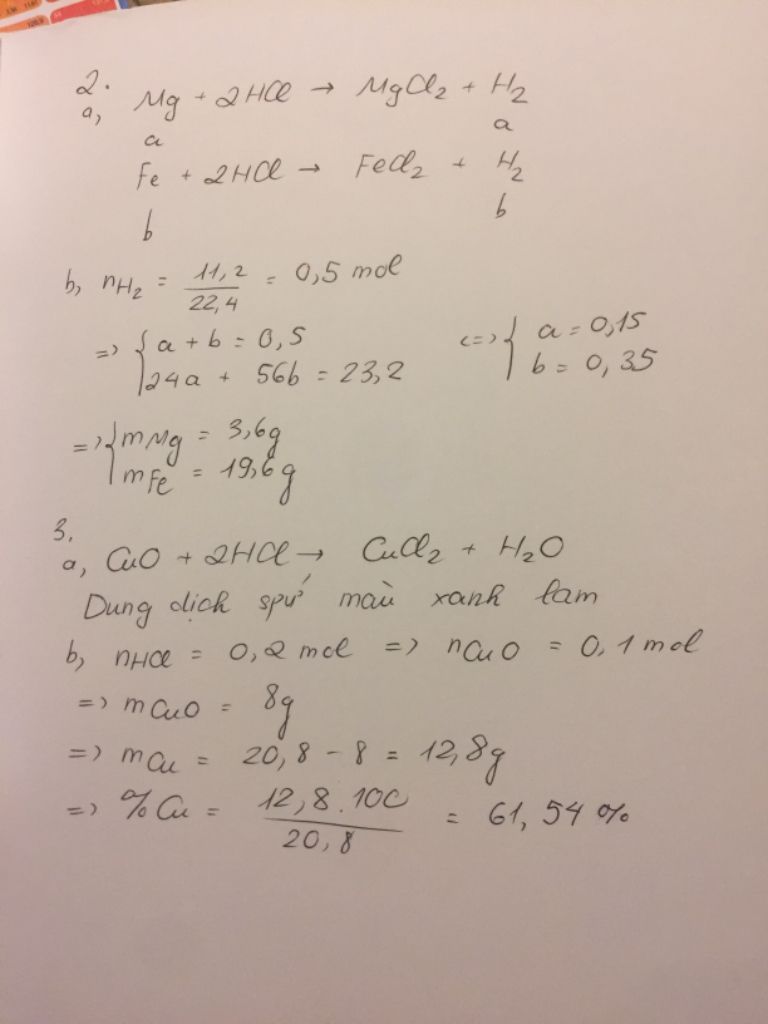 2.
a, Mg + 2HCl → MgCl2 + H2
a a
Fe + 2HCl → FeCl2 + H2
b b
b, nH2 = 11,2 / 22,4 = 0,5 mol
=> { a + b = 0,5 <=> { a = 0,15
24a + 56b = 23,2 b = 0,35
=> { mMg = 3,6g
mFe = 19,6g
3.
a, CuO + 2HCl → CuCl2 + H2O
Dung dịch spứ màu xanh lam
b, nHCl = 0,2 mol => nCuO = 0,1 mol
=> mCuO = 8g
=> mCu = 20,8 - 8 = 12,8g
=> %Cu = 12,8.100 / 20,8 = 61,54 %